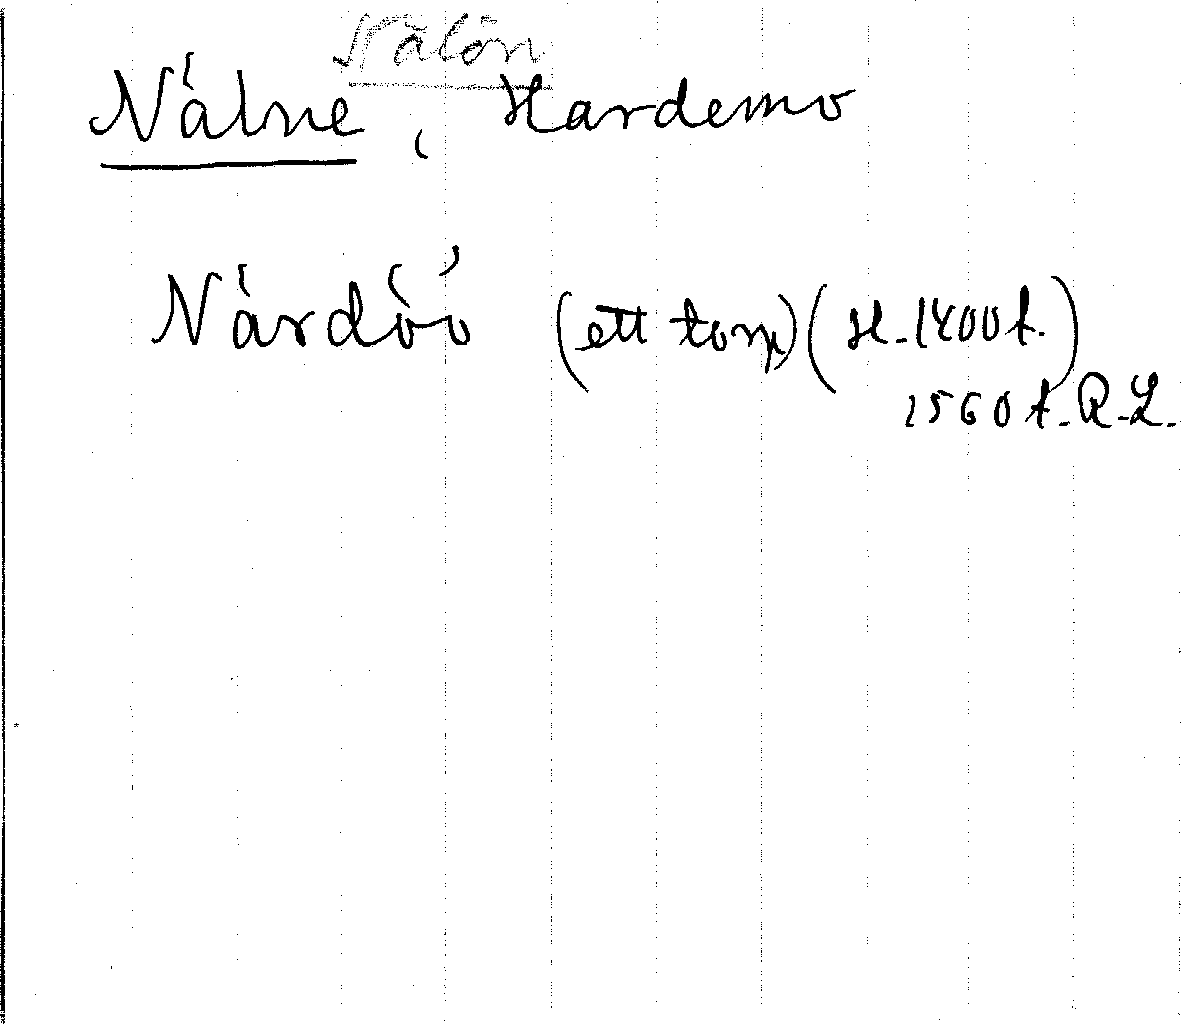 Nålön
Nålne, Hardemo
Nårdöó (ett torp) (H. 1400 t.)
1560 t. R. L.